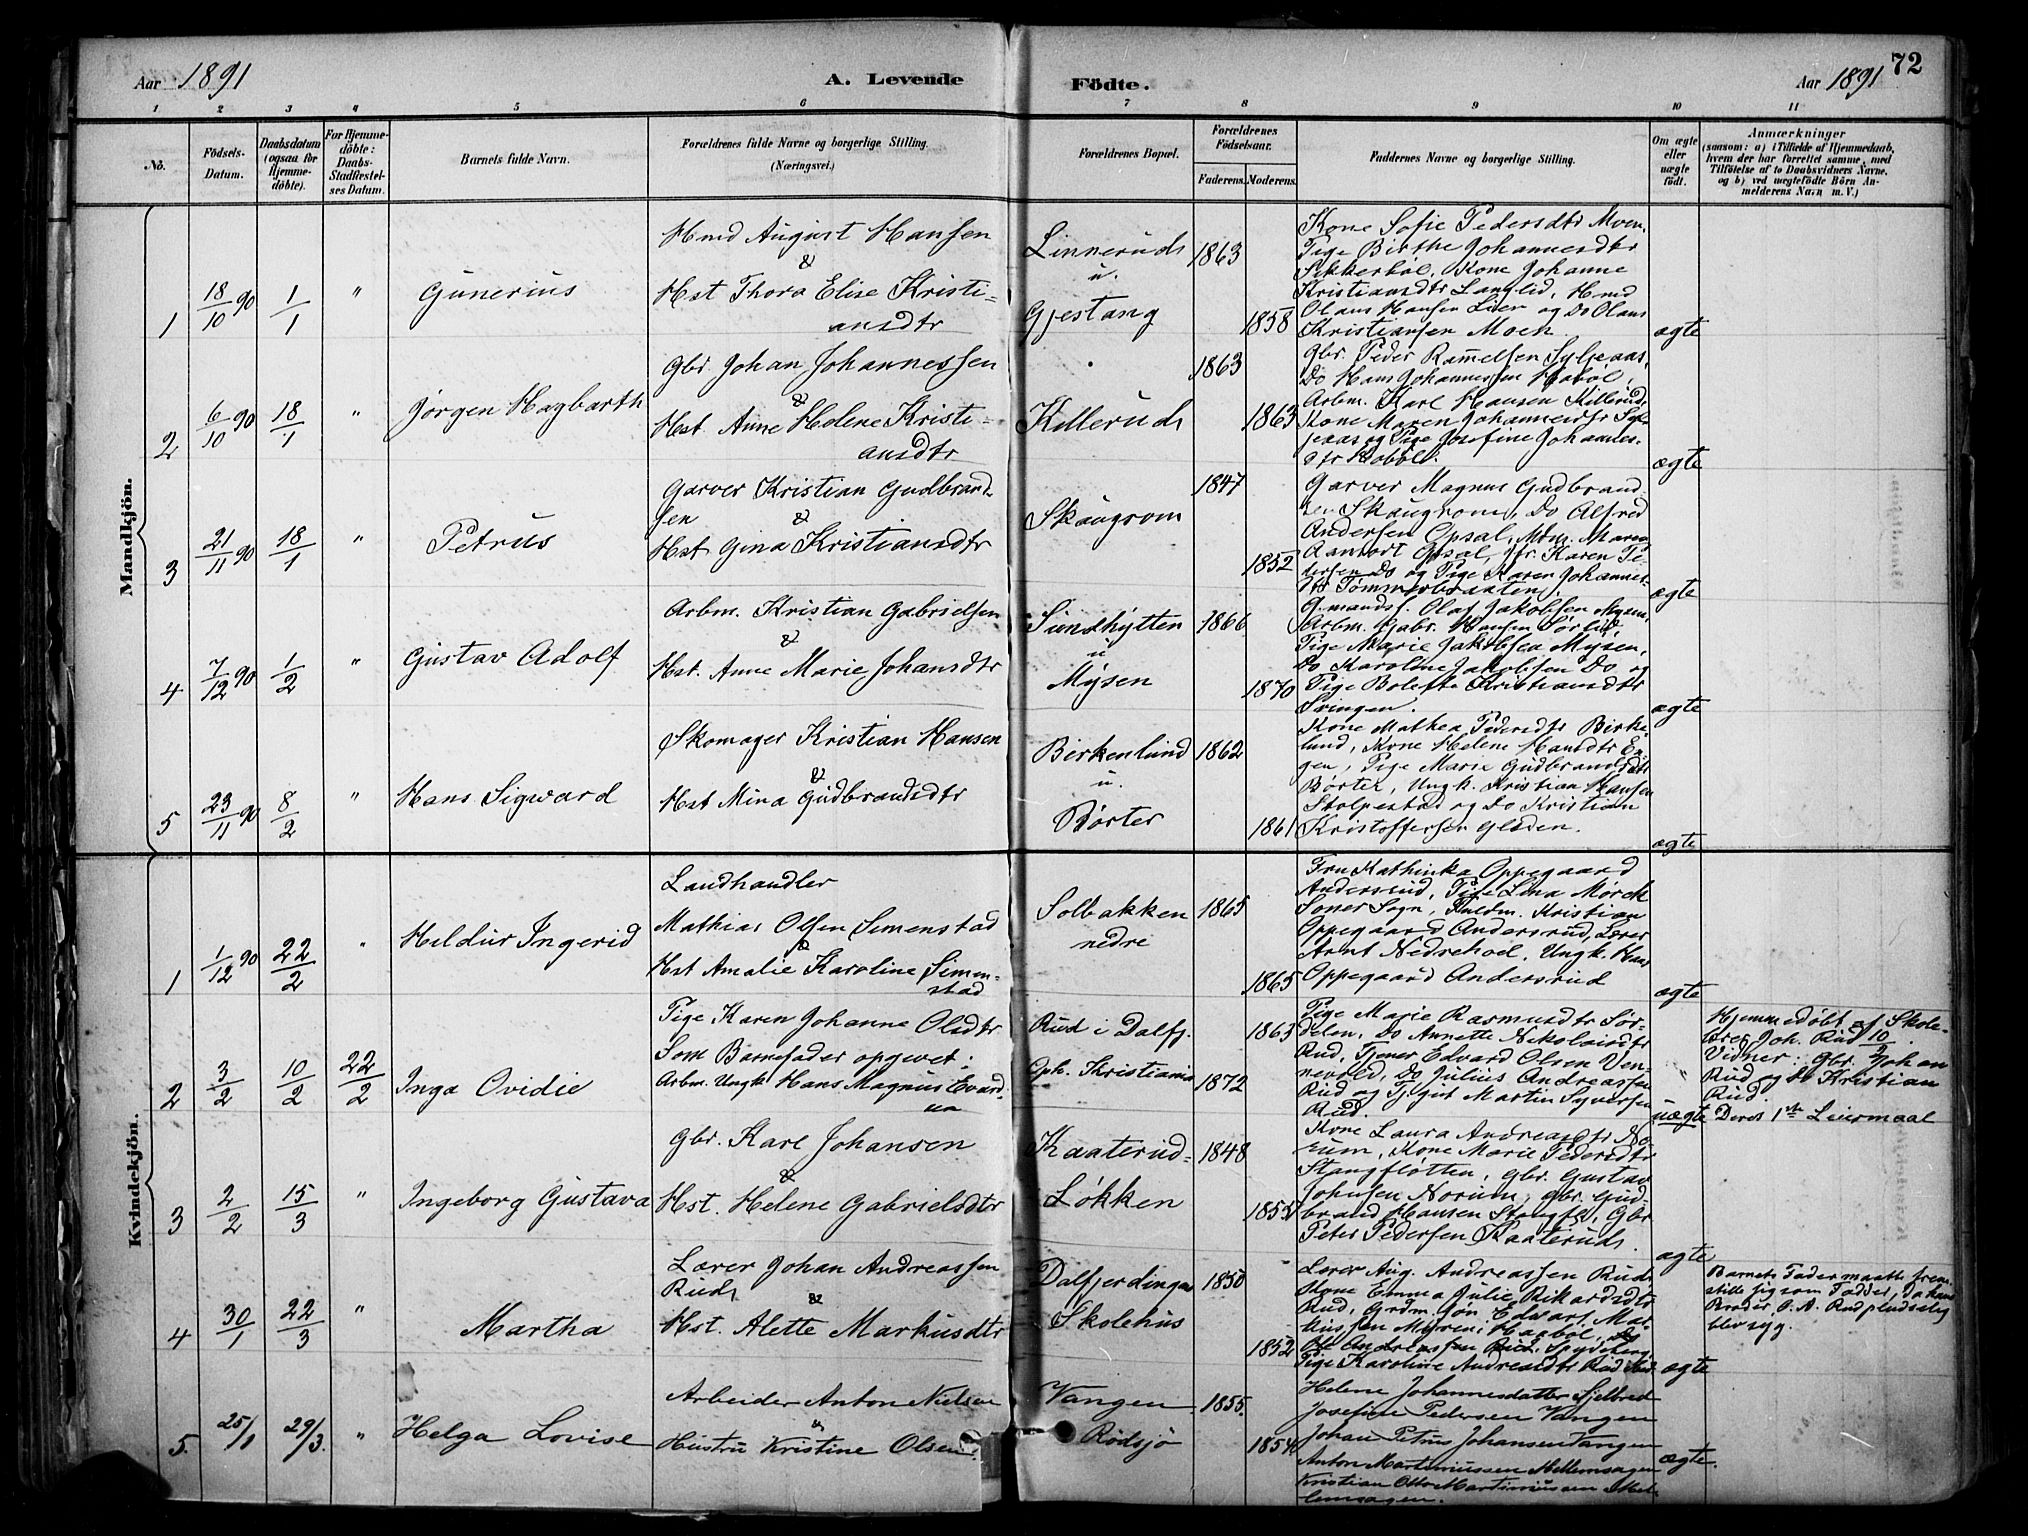 Aar 1891
A. Levende Födte.
Aar 1891
72
1 2 3 4 5 6 7 8 9 10 11
No.
Födsels-Datum.
Daabsdatum (ogsaa for Hjemmedöbte).
For Hjemmedöbte: Daabs-Stadfæstelses Datum.
Barnets fulde Navn.
Forældrenes fulde Navne og borgerlige Stilling. (Næringsvei.)
Forældrenes Bopæl.
Forældrenes Födselsaar.
Faderens. Moderens.
Faddernes Navne og borgerlige Stilling.
Om ægte eller uægte født.
Anmærkninger
(saasom: a) i Tilfælde af Hjemmedaab, hvem der har forrettet samme, med Tilföielse af to Daabsvidners Navne, og b) ved uægtefödte Börn Anmelderens Navn m. V.)
Mandkjön.
1 18/10 90 1/1 " Gunerius
Hmd August Hansen
&
Hst Thora Elise Kristi=
ansdtr
Linnerud
u.
Gjestang
1863 1858
Kone Sofie Pedersdtr Moen,
Pige Birthe Johannesdtr
Sikkerböl, Kone Johanne
Kristiansdtr Langlid, Hmd
Olaus Hansen Lier og Do Olaus
Kristiansen Moen.
ægte
2 6/10 90 18/1 " Jørgen Hagbarth
Gbr. Johan Johannessen
&
Hst. Anne Helene Kristi=
ansdtr
Killerud
1863 1863
Gbr. Peder Ramelsen Syljeaas,
Do Hans Johannessen Haböl,
Arbm. Karl Hansen Killerud,
Kone Maren Johannesdtr Syl-
jeaas og Pige Josefine Johannes-
dtr Haböl.
ægte
3 21/11 90 18/1 " Petrus
Garver Kristian Gudbrand-
sen &
Hst. Gina Kristiansdtr
Skaugrom
1847 1852
Garver Magnus Gudbrand
sen Skaugrom, Do Alfred
Andersen Opsal, Mdm. Maren
Aamodt Opsal, Jfr. Karen Pe
dersen Do og Pige Karen Johannes-
dtr Tømmerbraaten.
ægte
4 7/12 90 1/2 " Gustav Adolf
Arbm. Kristian Gabrielsen
&
Hst. Anne Marie Johansdtr
Sundhytten
u
Mysen
1866 1870
Gmands. Olaf Jakobsen Mysen,
Arbm. Gabr. Hansen Sørlid,
Pige Marie Jakobsen Mysen,
Do Karoline Jakobsen Do og
Pige Bolette Kristiansdtr
Svingen.
ægte
5 23/11 90 8/2 " Hans Sigward
Skomager Kristian Hansen
&
Hst Mina Gudbrandsdtr
Birkenlund
u.
Børter
1862 1861
Kone Mathea Pedersdtr Birke
lund, Kone Helene Hansdtr En
gen, Pige Marie Gudbrandsdtr
Børter, Ungk. Kristian Hansen
Stolpestad og Do Kristian
Kristoffersen Gladen.
ægte
Kvindekjön.
1 1/12 90 22/2 " Heldur Ingerid
Landhandler
Mathias Olsen Simenstad
&
Hst Amalie Karoline Simen-
stad
Solbakken
nedre
1865 1865
Fru Kathinka Oppegaard
Andersrud, Pige Lina Mørch
Soner Sogn, Fuldm. Kristian
Oppegaard Andersrud, Lærer
Arnt Nedrehoel, Ungk. Hans
Oppegaard Andersrud
ægte
2 3/2 10/2 22/2 Inga Ovidie
Pige Karen Johanne Olsdtr
Som Barnefader opgivet:
Arbm. Ungk. Hans Magnus Evard-
Rud i Dalfj.
Oph. Kristiania
1863 1872
Pige Marie Rasmusdtr Sør-
dalen, Do Annette Nikolaisdtr
Rud, Tjener Edvard Olsen Ven-
nevold, Do Julius Andreassen
Rud og Tj.gut Martin Syversen
Rud.
uægte
Hjemmedöbt af Skole-
lærer Joh. Rud 10/2.
Vidner: Gbr. Johan
Rud og Do Kristian
Rud.
Deres 1ste Leiermaal
3 2/2 15/3 " Ingeborg Gustava
Gbr. Karl Johansen
&
Hst. Helene Gabrielsdtr
Kaaterud-
Løkken
1848 1855
Kone Laura Andreasdtr No-
rum, Kone Marie Pedersdtr
Stangfløtten, Gbr. Gustav
Johnsen Norum, Gbr. Gud-
brand Hansen Stangfl., Gbr
Peter Pedersen Kaaterud.
ægte
4 30/1 22/3 " Martha
Lærer Johan Andreassen
Rud &
Hst. Alette Markusdtr
Dalfjerdingen
Skolehus
1850 1852
Lærer Aug. Andreassen Rud,
Kone Emma Julie Rikardsdtr
Rud, Grdm. Jon Edvart Mar-
kussen Myren i Haaböl, Do
Ole Andreassen Rud i Spydeberg
Pige Karoline Andreasdtr Rud
ægte
Barnets Fader maatte frem
stille sig som Fadder, da hans
Broder O. A. Rud pludselig
blev syg.
5. 25/1 29/3. " Helga Lovise
Arbeider Anton Nielsen
&
Hustru Kristine Olsen.
Vangen
Rödsjö
1855. 1854
Helene Johannesdatter Sjelbred
Josefine Pedersen Vangen
Johan Petrus Johansen Vangen
Anton Martinussen Mellemsagen
Kristian Otto Martinussen Mel-
lemsagen.
ægte.